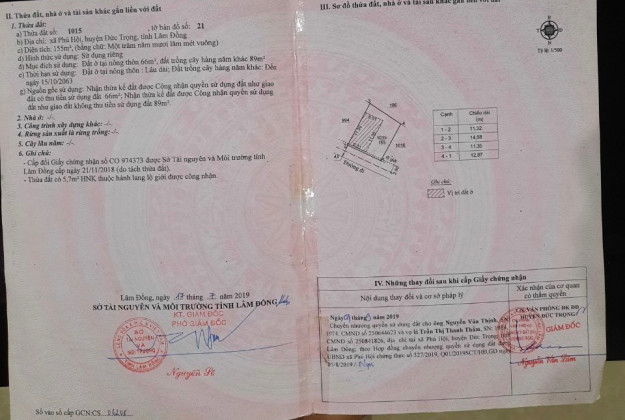 II. Thửa đất, nhà ở và tài sản khác gắn liền với đất
1. Thửa đất:
a) Thửa đất số: 1015, tờ bản đồ số: 21
b) Địa chỉ: xã Phú Hội, huyện Đức Trọng, tỉnh Lâm Đồng
c) Diện tích: 155m², (bằng chữ: Một trăm năm mươi lăm mét vuông)
d) Hình thức sử dụng: Sử dụng riêng
đ) Mục đích sử dụng: Đất ở tại nông thôn 66m², đất trồng cây hàng năm khác 89m²
e) Thời hạn sử dụng: Đất ở tại nông thôn: Lâu dài; Đất trồng cây hàng năm khác: Đến
ngày 15/10/2063
g) Nguồn gốc sử dụng: Nhận thừa kế đất được Công nhận quyền sử dụng đất như giao
đất có thu tiền sử dụng đất 66m²; Nhận thừa kế đất được Công nhận quyền sử dụng
đất như giao đất không thu tiền sử dụng đất 89m².
2. Nhà ở: -/-
3. Công trình xây dựng khác: -/-
4. Rừng sản xuất là rừng trồng: -/-
5. Cây lâu năm: -/-
6. Ghi chú:
- Cấp đổi Giấy chứng nhận số CO 974373 được Sở Tài nguyên và Môi trường tỉnh
Lâm Đồng cấp ngày 21/11/2018 (do tách thửa đất).
- Thửa đất có 5,7m² HNK thuộc hành lang lộ giới được công nhận.
Lâm Đồng, ngày 17 tháng 7 năm 2019
SỞ TÀI NGUYÊN VÀ MÔI TRƯỜNG TỈNH LÂM ĐỒNG
KT. GIÁM ĐỐC
PHÓ GIÁM ĐỐC
SỞ
TÀI NGUYÊN
VÀ
MÔI TRƯỜNG
Số vào sổ cấp GCN:CS
III. Sơ đồ thửa đất, nhà ở và tài sản khác gắn liền với đất
Tỷ lệ 1/500
994
Đường đi
Cạnh Chiều dài (m)
1 - 2 11,32
2 - 3 14,58
3 - 4 11,30
4 - 1 12,87
Ghi chú:
Vị trí đất ở
IV. Những thay đổi sau khi cấp Giấy chứng nhận
Nội dung thay đổi và cơ sở pháp lý
Xác nhận của cơ quan
có thẩm quyền
năm 2019
Chuyển nhượng quyền sử dụng đất cho ông Nguyễn Văn Thịnh,
1974, CMND số và vợ là Trần Thị Thanh Thắm,
CMND số 250841826, địa chỉ tại xã Phú Hội, huyện Đức Trọng, tỉnh
Lâm Đồng; theo Hợp đồng chuyển nhượng quyền sử dụng đất được
UBND xã Phú Hội chứng thực số 527/2019,
VĂN PHÒNG ĐK ĐĐ
HUYỆN ĐỨC TRỌNG
GIÁM ĐỐC
Nguyễn Văn Lâm